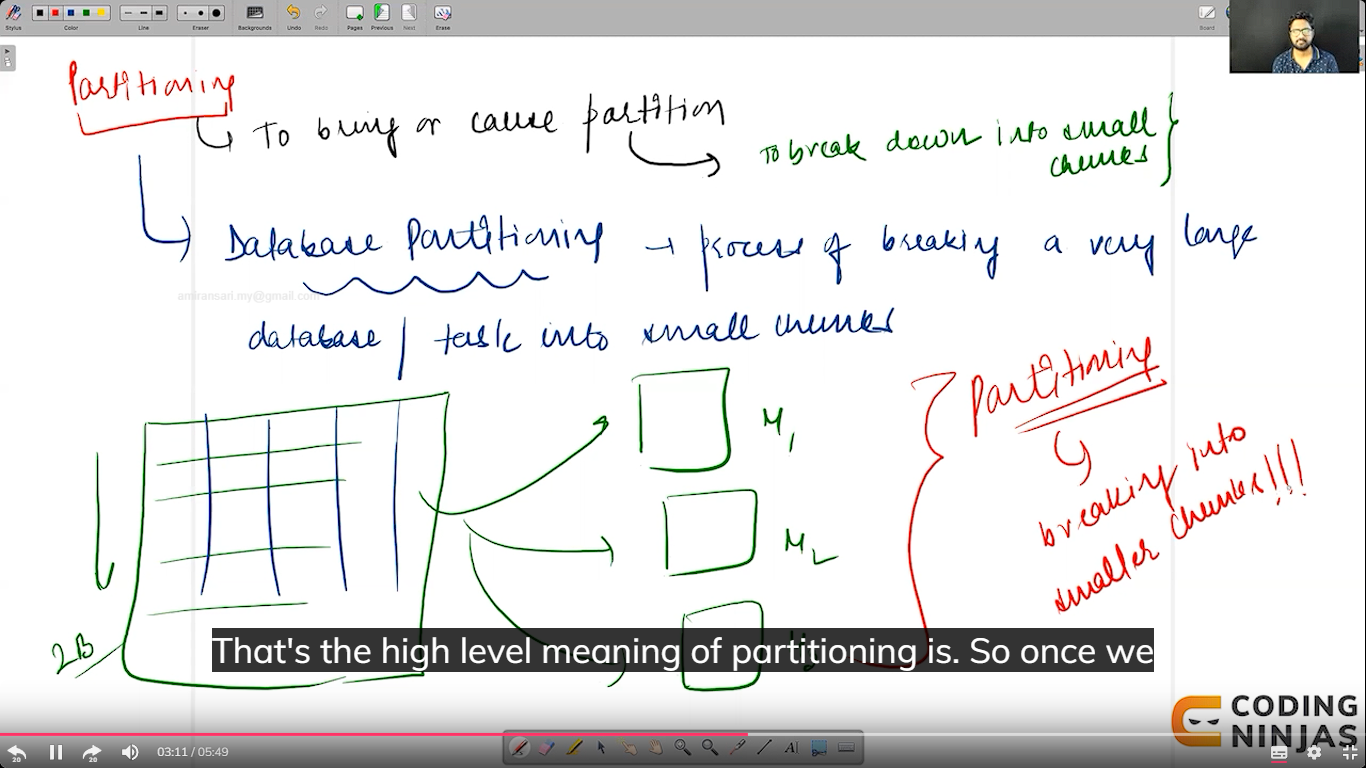 Stylus
Color
Line
Eraser
Backgrounds
Undo
Redo
Pages
Previous
Next
Erase
Board
Partitioning
To bring or cause partition
To break down into small
chunks
Database Partitioning → process of breaking a very large
amiransari.my@gmail.com
database / task into small chunks
Partitioning
breaking into
smaller chunks!!!
M1
M2
2B
That's the high level meaning of partitioning is. So once we
CODING
NINJAS
20
20
03:11 / 05:49